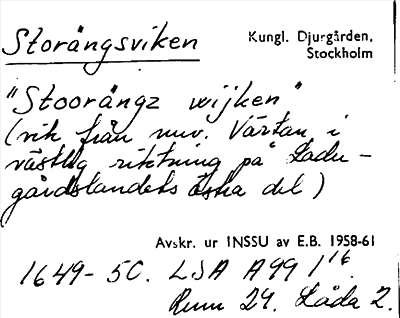 Storängsviken
Kungl. Djurgården,
Stockholm
"Stoorängz wijken"
(vik från nuv. Värtan i
västlig riktning på Ladu-
gårdslandets östra del)
Avskr. ur INSSU av E.B. 1958-61
1649-50. LSA A99 1¹⁶.
Rum 24. Låda 2.